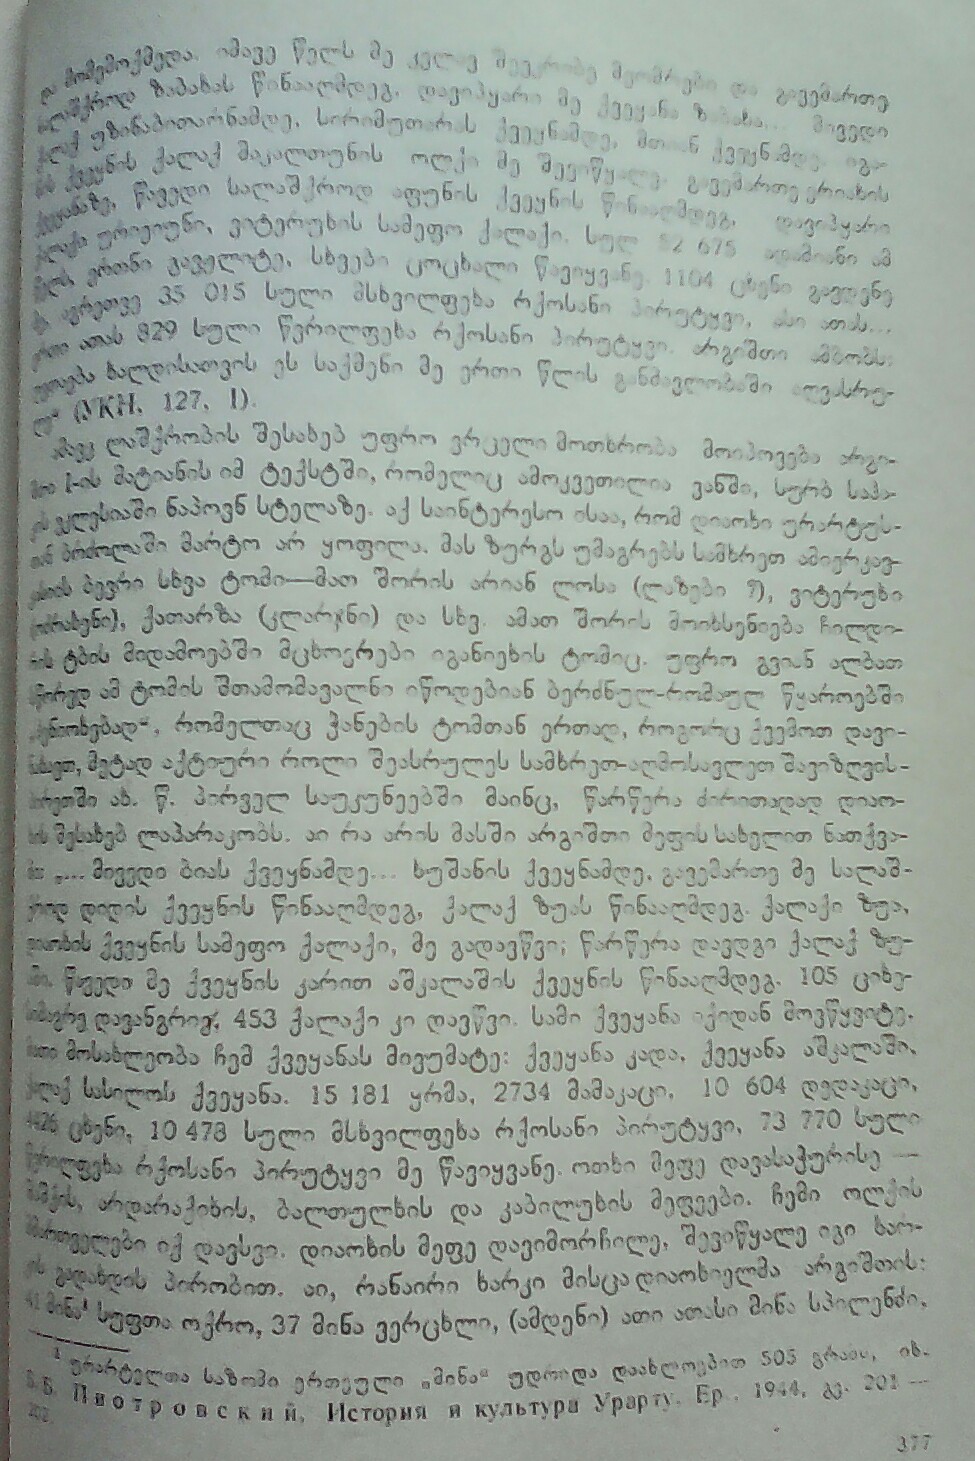 და მომემოქმედა. იმავე წელს მე კვლავ შევკრიბე მეომრები და გავემართე
სალაშქროდ ზაბახას წინააღმდეგ. დავიპყარი მე ქვეყანა ზაბახა... მივედი
ქალაქ უზინაბითარნამდე, სირიმუთარას ქვეყნამდე, მთიან ქვეყნამდე. იგა-
ნის ქვეყნის ქალაქ მაკალთუნის ოლქი მე შევიწყალე. გავემართე ერიახის
ქვეყანაზე, წავედი სალაშქროდ აფუნის ქვეყნის წინააღმდეგ, დავიპყარი
ქალაქი ურიეიუნი, ვიტერუხის სამეფო ქალაქი. სულ 52 675 ადამიანი ამ
წელს, ერთნი გავჟლიტე, სხვები ცოცხალი წავიყვანე. 1104 ცხენი გავდენე
აგრეთვე 35 015 სული მსხვილფეხა რქოსანი პირუტყვი, ასი ათას...
ერთი ათას 829 სული წვრილფეხა რქოსანი პირუტყვი. არგიშთი ამბობს:
ხალდისათვის ეს საქმენი მე ერთი წლის განმავლობაში აღვასრუ-
ლე“ (УКН, 127, I).
ამავე ლაშქრობის შესახებ უფრო ვრცელი მოთხრობა მოიპოვება არგი-
შთი I-ის მატიანის იმ ტექსტში, რომელიც ამოკვეთილია ვანში, სურბ საჰა-
კის ეკლესიაში ნაპოვნ სტელაზე. აქ საინტერესო ისაა, რომ დიაოხი ურარტუს-
თან ბრძოლაში მარტო არ ყოფილა. მას ზურგს უმაგრებს სამხრეთ ამიერკავ-
კასიის ბევრი სხვა ტომი—მათ შორის არიან ლოსა (ლაზები ?), ვიტერუხი
ქათარზა (კლარჯნი) და სხვ. ამათ შორის მოიხსენიება ჩილდი-
რის ტბის მიდამოებში მცხოვრები იგანიეხის ტომიც. უფრო გვიან ალბათ
სწორედ ამ ტომის შთამომავალნი იწოდებიან ბერძნულ-რომაულ წყაროებში
„ჰენიოხებად“, რომელთაც ჭანების ტომთან ერთად, როგორც ქვემოთ დავი-
ნახავთ, მეტად აქტიური როლი შეასრულეს სამხრეთ-აღმოსავლეთ შავიზღვის-
პირეთში ახ. წ. პირველ საუკუნეებში მაინც, წარწერა ძირითადად დიაო-
ხის შესახებ ლაპარაკობს. აი რა არის მასში არგიშთი მეფის სახელით ნათქვა-
მი: „... მივედი ბიას ქვეყნამდე... ხუშანის ქვეყნამდე, გავემართე მე სალაშ-
ქროდ დიდის ქვეყნის წინააღმდეგ, ქალაქ ზუას წინააღმდეგ. ქალაქი ზუა,
დიაოხის ქვეყნის სამეფო ქალაქი, მე გადავწვი; წარწერა დავდგი ქალაქ ზუ-
აში. წავედი მე ქვეყნის კარით აშკალაშის ქვეყნის წინააღმდეგ. 105 ციხე-
სიმაგრე დავანგრიე, 453 ქალაქი კი დავწვი. სამი ქვეყანა იქიდან მოვწყვიტე.
მათი მოსახლეობა ჩემ ქვეყანას მივუმატე: ქვეყანა კადა, ქვეყანა აშკალაში,
ქალაქ სასილოს ქვეყანა. 15 181 ყრმა, 2734 მამაკაცი, 10 604 დედაკაცი,
4426 ცხენი, 10 478 სული მსხვილფეხა რქოსანი პირუტყვი, 73 770 სული
წვრილფეხა რქოსანი პირუტყვი მე წავიყვანე. ოთხი მეფე დავასაჭურისე —
შაშქის, არდარაქიხის, ბალთულხის და კაბილუხის მეფეები. ჩემი ოლქის
მმართველები იქ დავსვი. დიაოხის მეფე დავიმორჩილე, შევიწყალე იგი ხარ-
კის გადახდის პირობით. აი, რანაირი ხარკი მისცა დიაოხიელმა არგიშთის:
41 მინა¹ სუფთა ოქრო, 37 მინა ვერცხლი, (ამდენი) ათი ათასი მინა სპილენძი,
¹ ურარტელთა საზომი ერთეული „მინა“ უდრიდა დაახლოებით 505 გრამს, იხ.
Б. Б. Пиотровский, История и культура Урарту. Ер., 1944, გვ. 201 —
202.
377